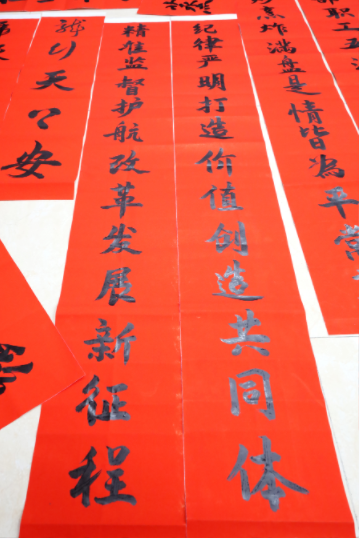 职工五
炸满盘是情皆為平常
纪律严明打造价值创造共同体
精准监督护航改革发展新征程
行天
安